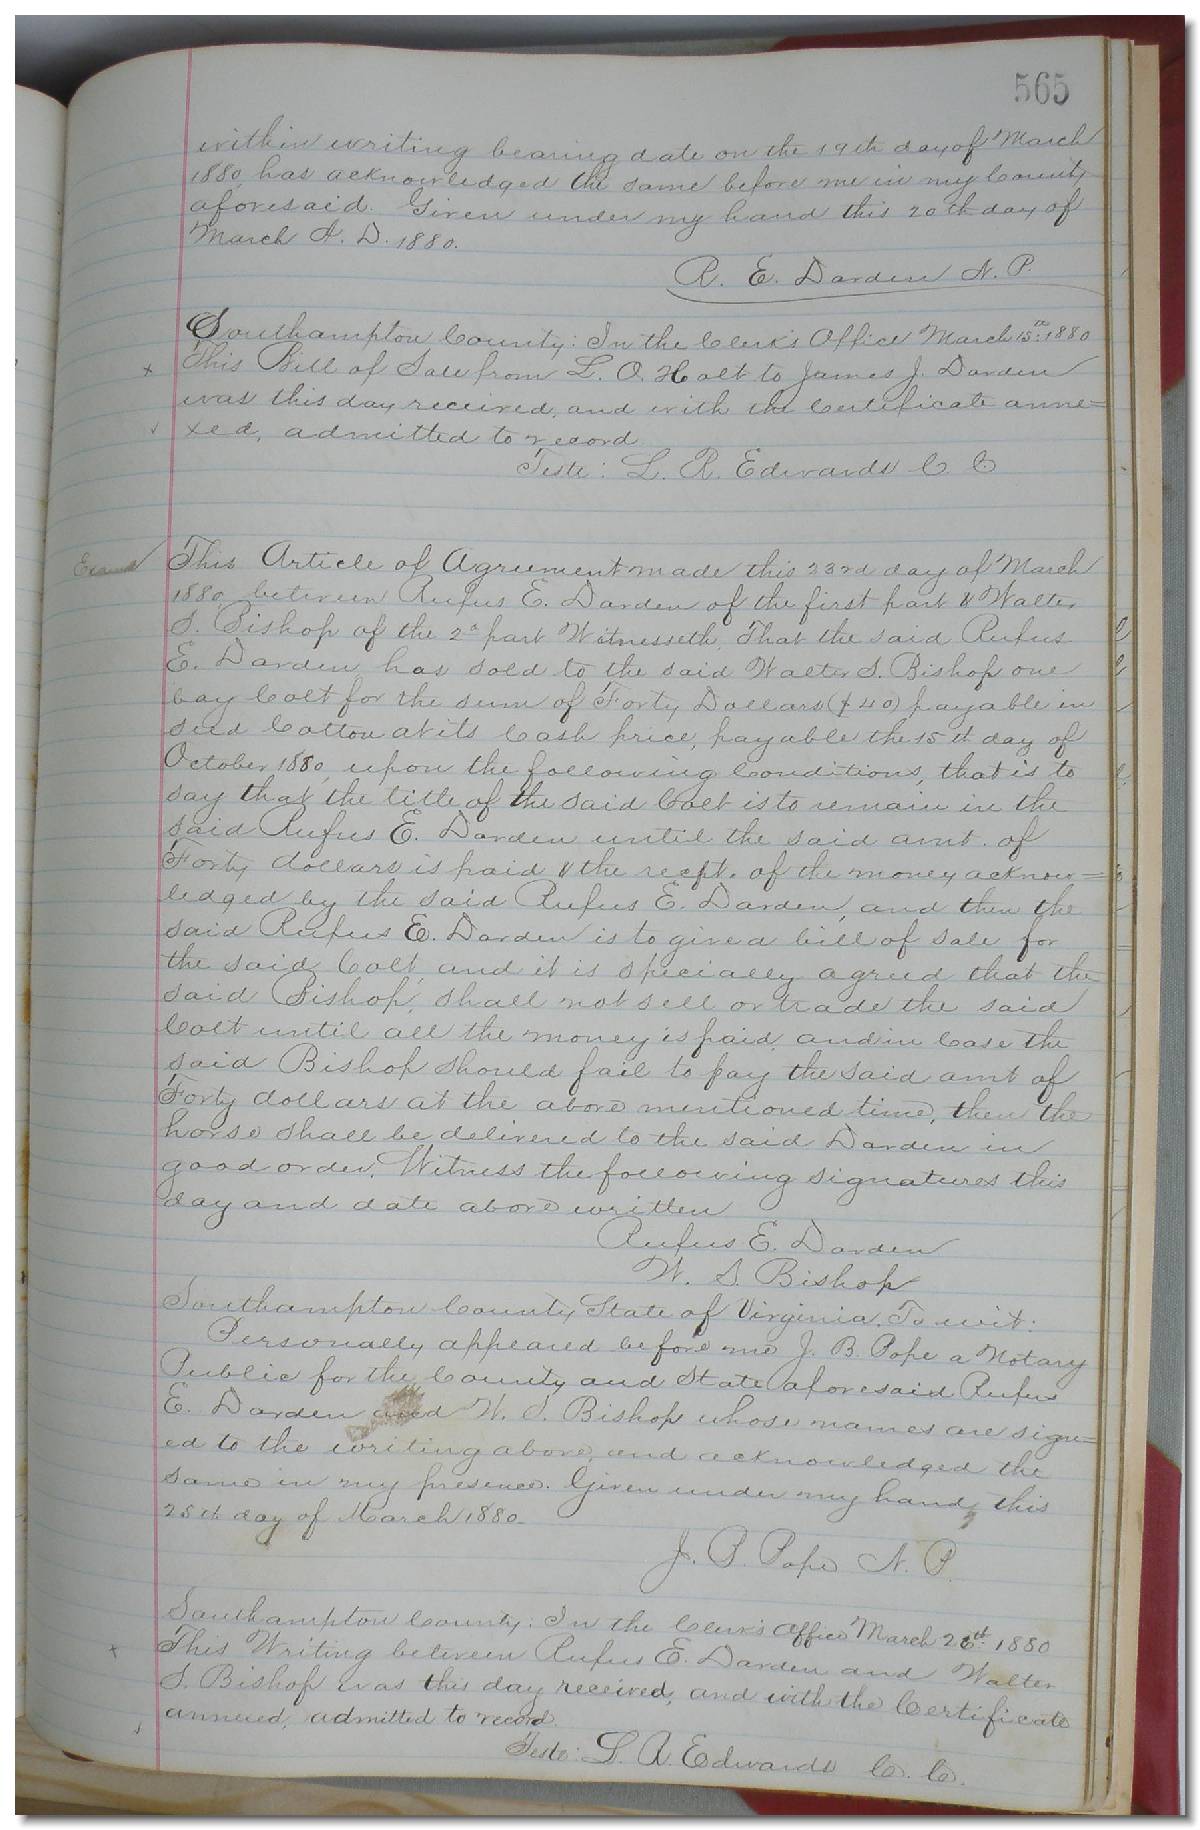 565
within writing bearing date on the 19th day of March
1880, has acknowledged the same before me in my County
aforesaid. Given under my hand this 20th day of
March A. D. 1880.
R. E. Darden N. P.
Southampton County: In the Clerk's Office March 1880
This Bill of Sale from L. O. Holt to James J. Darden
was this day received, and with the Certificate anne=
xed, admitted to record
Teste: L. R. Edwards C. C
This Article of Agreement made this 23rd day of March
1880, between Rufus E. Darden of the first part & Walter
S. Bishop of the 2d part Witnesseth, That the said Rufus
E. Darden, has sold to the said Walter S. Bishop one
bay Colt for the sum of Forty Dollars ($40) payable in
seed Cotton at its Cash price, payable the 15th day of
October 1880, upon the following Conditions, that is to
say that the title of the said Colt is to remain in the
said Rufus E. Darden until the said amt. of
Forty dollars is paid & the recpt. of the money acknow=
ledged by the said Rufus E. Darden, and then the
said Rufus E. Darden is to give a bill of sale for
the said Colt, and it is specially agreed that the
said Bishop, shall not sell or trade the said
Colt until all the money is paid, and in Case the
said Bishop should fail to pay the said amt of
Forty dollars at the above mentioned time, then the
horse shall be delivered to the said Darden in
good order. Witness the following signatures this
day and date above written
Rufus E. Darden
W. S. Bishop
Southampton County, State of Virginia, To wit:
Personally appeared before me J. B. Pope a Notary
Public for the County and State aforesaid Rufus
E. Darden and W. S. Bishop whose names are sign=
ed to the writing above, and acknowledged the
same in my presence. Given under my hand, this
25th day of March 1880.
J. B. Pope N. P.
Southampton County: In the Clerk's Office March 26th 1880
This Writing between Rufus E. Darden and Walter
S. Bishop was this day received, and with the Certificate
annexed, admitted to record.
Teste: L. R. Edwards C. C.